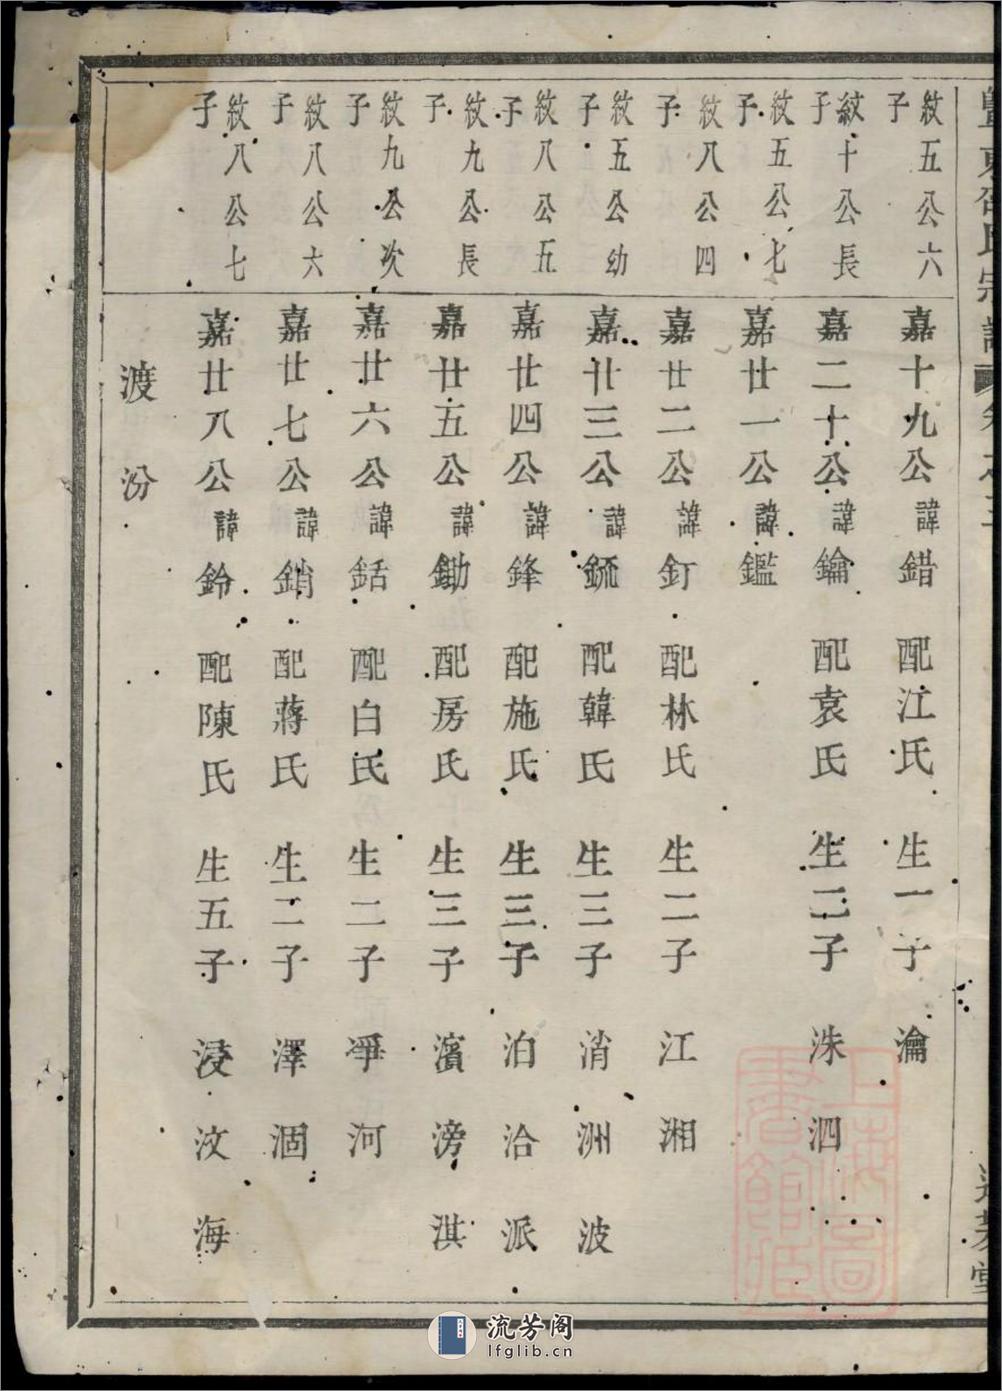 暨東邵氏宗譜 卷之三
紋五公六子 嘉十九公諱錯 配江氏 生一子 瀹
紋十公長子 嘉二十公諱鑰 配袁氏 生二子 洙 泗
紋五公七子 嘉廿一公諱鑑
紋八公四子 嘉廿二公諱釘 配林氏 生二子 江 湘
紋五公幼子 嘉廿三公諱鋶 配韓氏 生三子 消 洲 波
紋八公五子 嘉廿四公諱鋒 配施氏 生三子 泊 洽 派
紋九公長子 嘉廿五公諱鋤 配房氏 生三子 濱 滂 淇
紋九公次子 嘉廿六公諱銛 配白氏 生二子 淨 河
紋八公六子 嘉廿七公諱銷 配蔣氏 生二子 澤 涸
紋八公七子 嘉廿八公諱鈴 配陳氏 生五子 浸 汶 海
渡 汾
上海圖書館藏
流芳阁
lfglib.cn